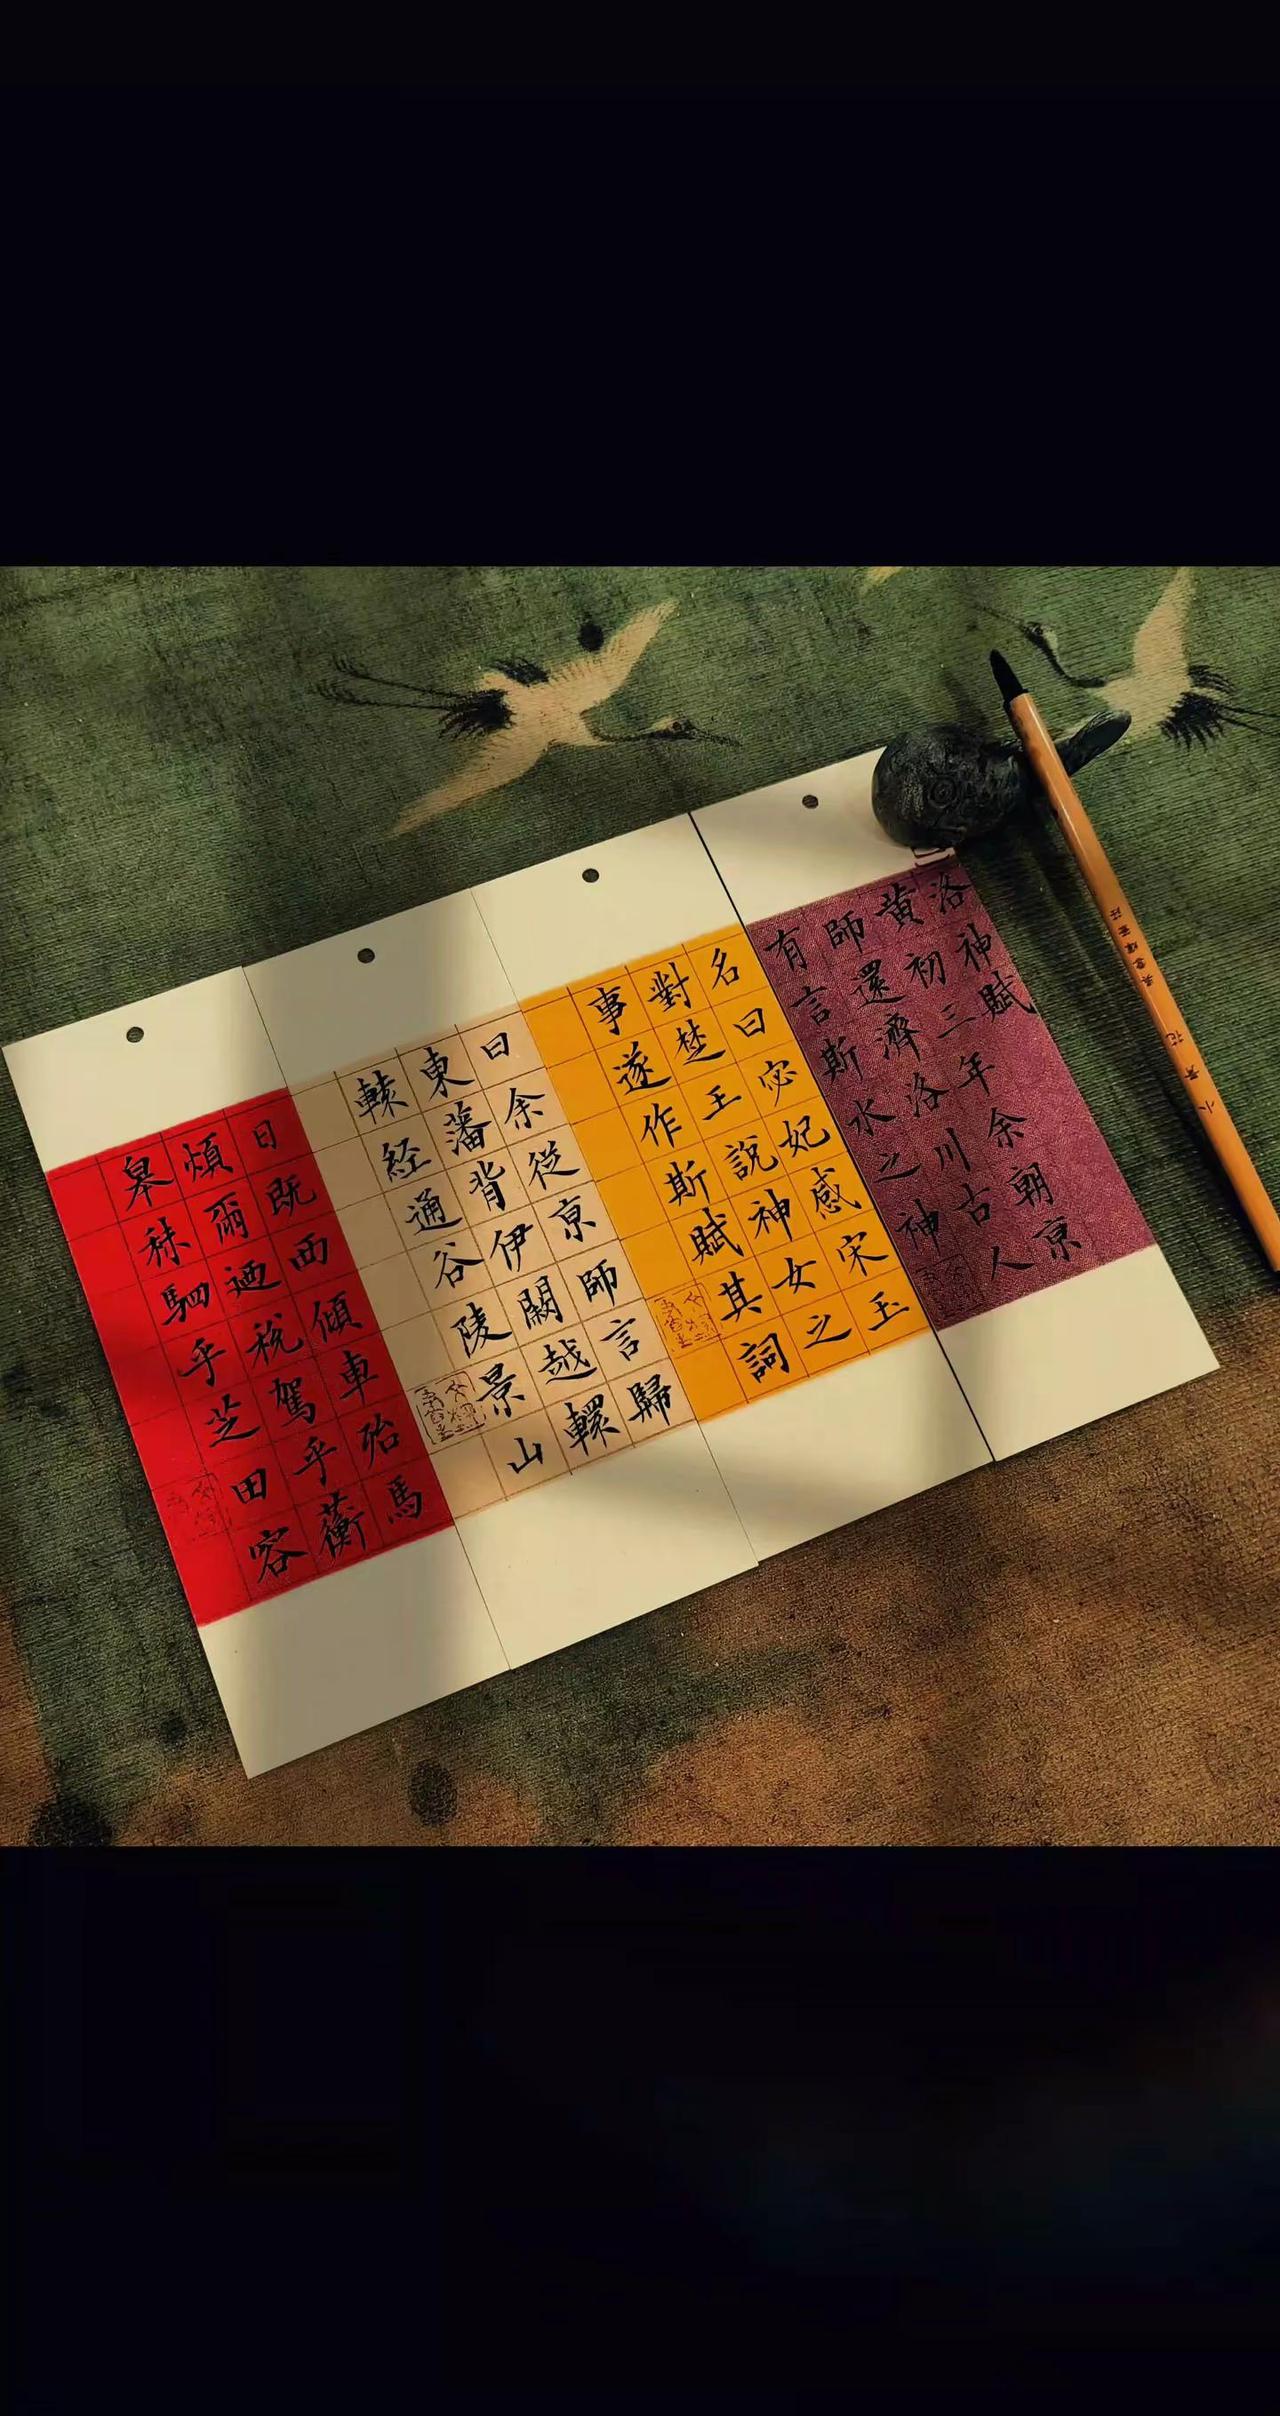 洛神賦
黄初三年余朝京
師還濟洛川古人
有言斯水之神
名曰宓妃感宋玉
對楚王說神女之
事遂作斯賦其詞
曰余從京師言歸
東藩背伊闕越轘
轅経通谷陵景山
日既西傾車殆馬
煩爾迺稅駕乎蘅
皋秣駟乎芝田容